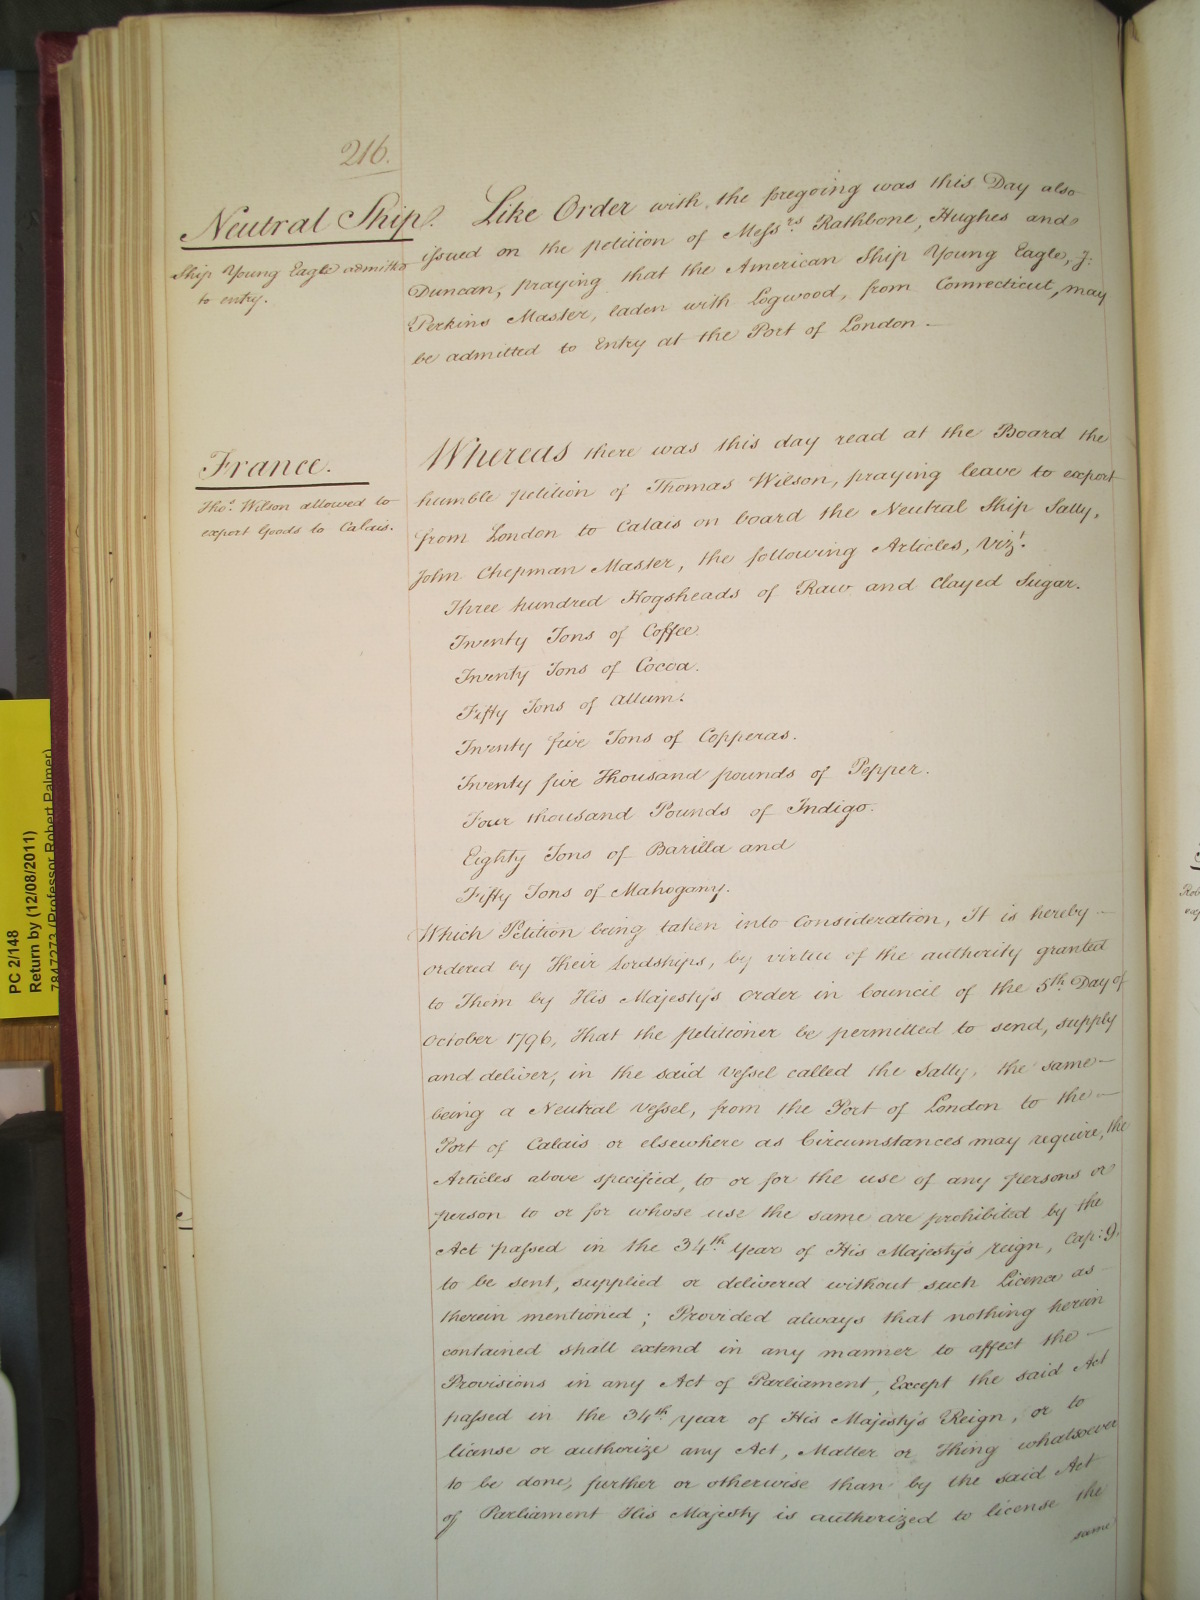 216.
Neutral Ship.
Ship Young Eagle admitted
to entry.
Like Order with the foregoing was this Day also
issued on the petition of Messrs. Rathbone, Hughes and
Duncan, praying that the American Ship Young Eagle, J:
Perkins Master, laden with Logwood, from Connecticut, may
be admitted to Entry at the Port of London —
France.
Thos. Wilson allowed to
export Goods to Calais.
Whereas there was this day read at the Board the
humble petition of Thomas Wilson, praying leave to export
from London to Calais on board the Neutral Ship Sally,
John Chepman Master, the following Articles, Vizt.
Three hundred Hogsheads of Raw and Clayed Sugar.
Twenty Tons of Coffee.
Twenty Tons of Cocoa.
Fifty Tons of Allum.
Twenty five Tons of Copperas.
Twenty five Thousand pounds of Pepper.
Four thousand Pounds of Indigo.
Eighty Tons of Barilla and
Fifty Tons of Mahogany.
Which Petition being taken into Consideration, It is hereby —
ordered by Their Lordships, by virtue of the authority granted
to Them by His Majesty's Order in Council of the 5th. Day of
October 1796, That the petitioner be permitted to send, supply
and deliver, in the said Vessel called the Sally, the same —
being a Neutral Vessel, from the Port of London to the —
Port of Calais or elsewhere as Circumstances may require, the
Articles above specified, to or for the use of any persons or
person to or for whose use the same are prohibited by the
Act passed in the 34th. Year of His Majesty's reign, Cap: 9.
to be sent, supplied or delivered without such Licence as
therein mentioned; Provided always that nothing herein
contained shall extend in any manner to affect the —
Provisions in any Act of Parliament, Except the said Act
passed in the 34th. year of His Majesty's Reign, or to
license or authorize any Act, Matter or Thing whatsoever
to be done, further or otherwise than by the said Act
of Parliament His Majesty is authorized to license the
same
PC 2/148
Return by (12/08/2011)
7847273 (Professor Robert Palmer)